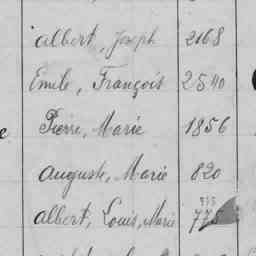 albert, Joseph 2168
Emile, François 2540
Pierre, Marie 1856
auguste, Marie 820
albert, Louis, Marie